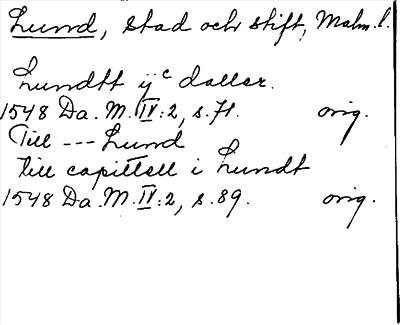 Lund, stad och stift, Malm. l.
Lundtt ijᶜ daller.
1548 Da. M. IV:2, s. 71. orig.
Till --- Lund
till capittell i Lundt
1548 Da. M. IV:2, s. 89. orig.